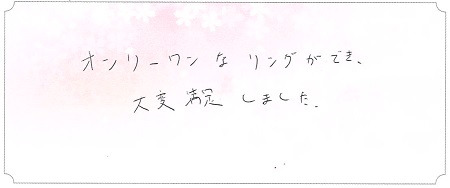 オンリーワンな リングができ、
大変満足しました。